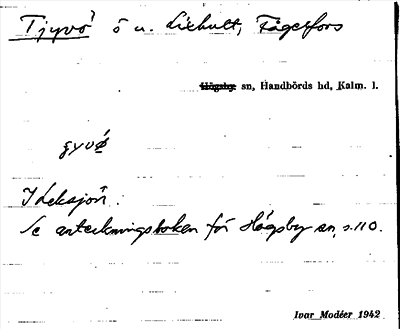 Tjyvö ö u. Liehult, Fågelfors
Högsby sn, Handbörds hd, Kalm. l.
ȝyvǿ
I
Se anteckningsboken för Högsby sn, s. 110.
Ivar Modéer 1942